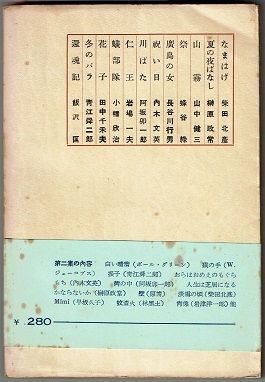 なまはげ　柴田北彦
夏の夜ばなし　榊原政常
山霧　山中健三
祭　蜂谷緑
廣島の女　長谷川行男
祝い日　内木文英
川ばた　阿坂卯一郎
仁王　岩場一夫
蟻部隊　小幡欣治
花子　田中千禾夫
冬のバラ　青江舜二郎
還魂記　飯沢匡
第二集の内容　白い晴着（ポール・グリーン）　猿の手（W.
ジェーコブス）　振子（青江舜二郎）　おらはおめえのもぐら
もち（内木文英）　碑の中（阿坂卯一郎）　人生は芝居になる
かならないか（榊原政常）　壁（原博）　（柴田北彦）
Mimi（早坂久子）　（林黒土）　（岩津津一郎）他
￥ 280